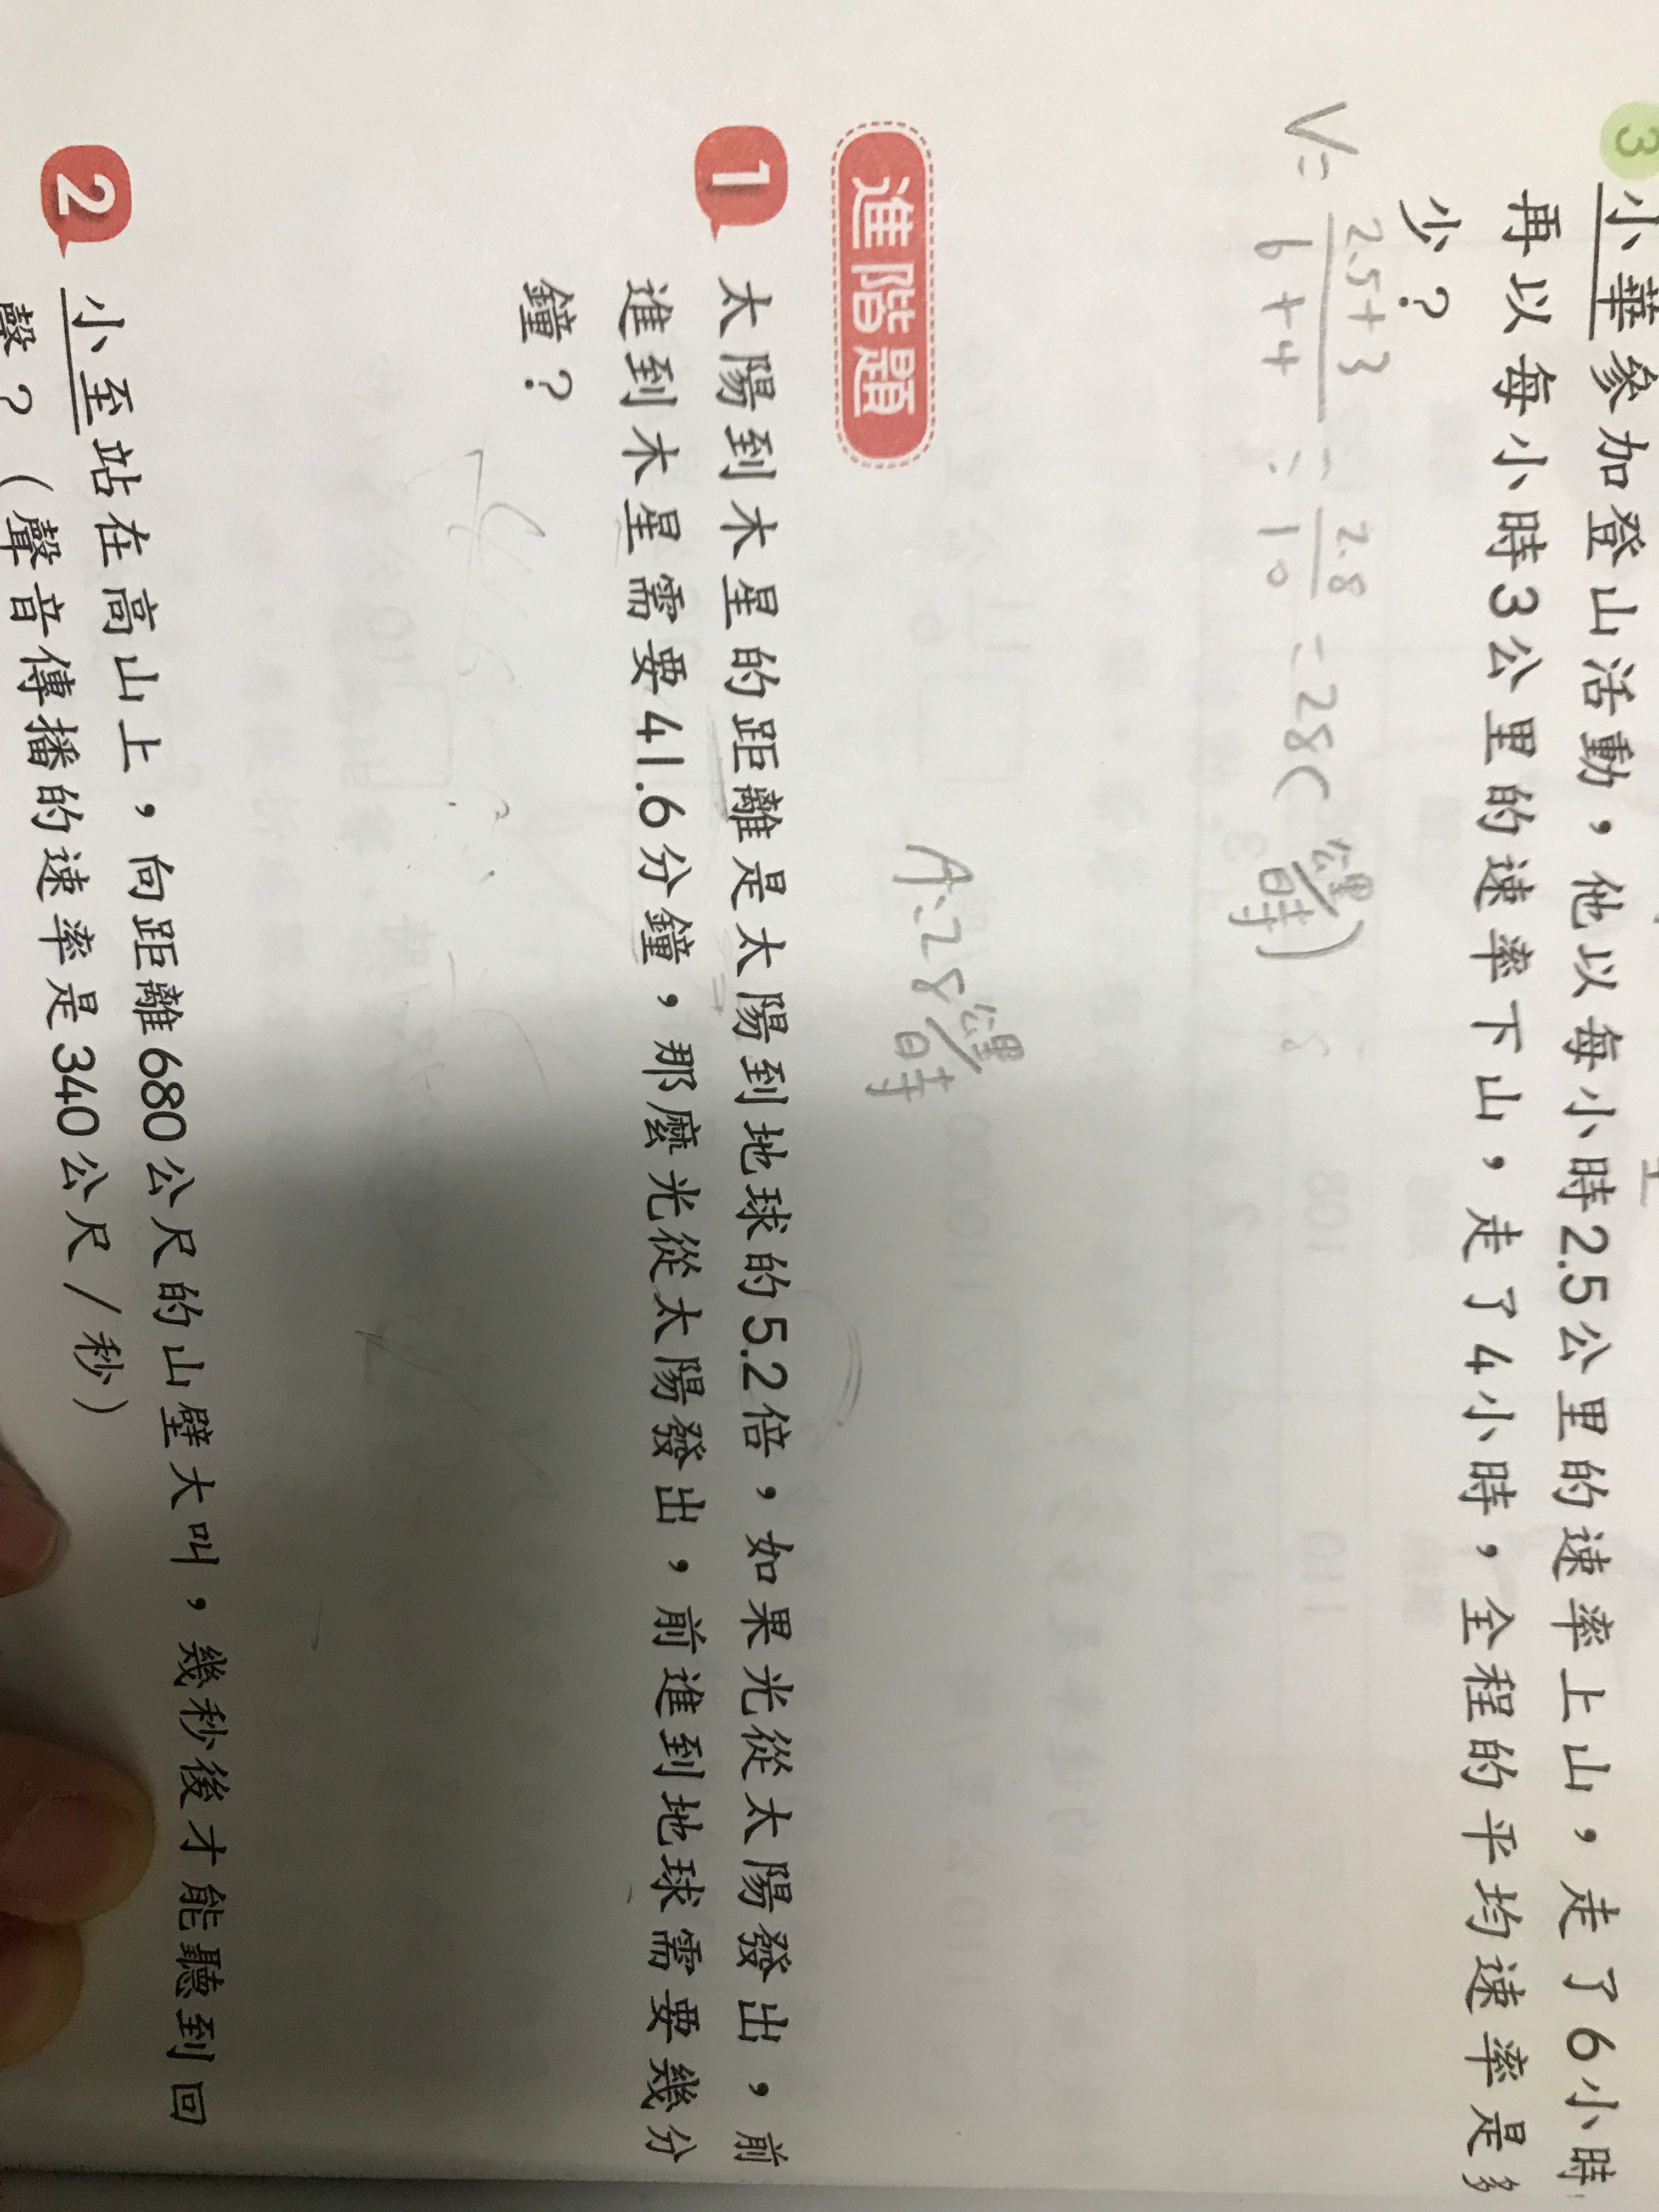 3 小華參加登山活動，他以每小時2.5公里的速率上山，走了6小時
再以每小時3公里的速率下山，走了4小時，全程的平均速率是多
少？
V= 2.5+3 / 6+4 = 2.8 / 10 = 28(公里/時)
A:28公里/時
進階題
1 太陽到木星的距離是太陽到地球的5.2倍，如果光從太陽發出，前
進到木星需要41.6分鐘，那麼光從太陽發出，前進到地球需要幾分
鐘？
2 小至站在高山上，向距離680公尺的山壁大叫，幾秒後才能聽到回
聲？（聲音傳播的速率是340公尺/秒）